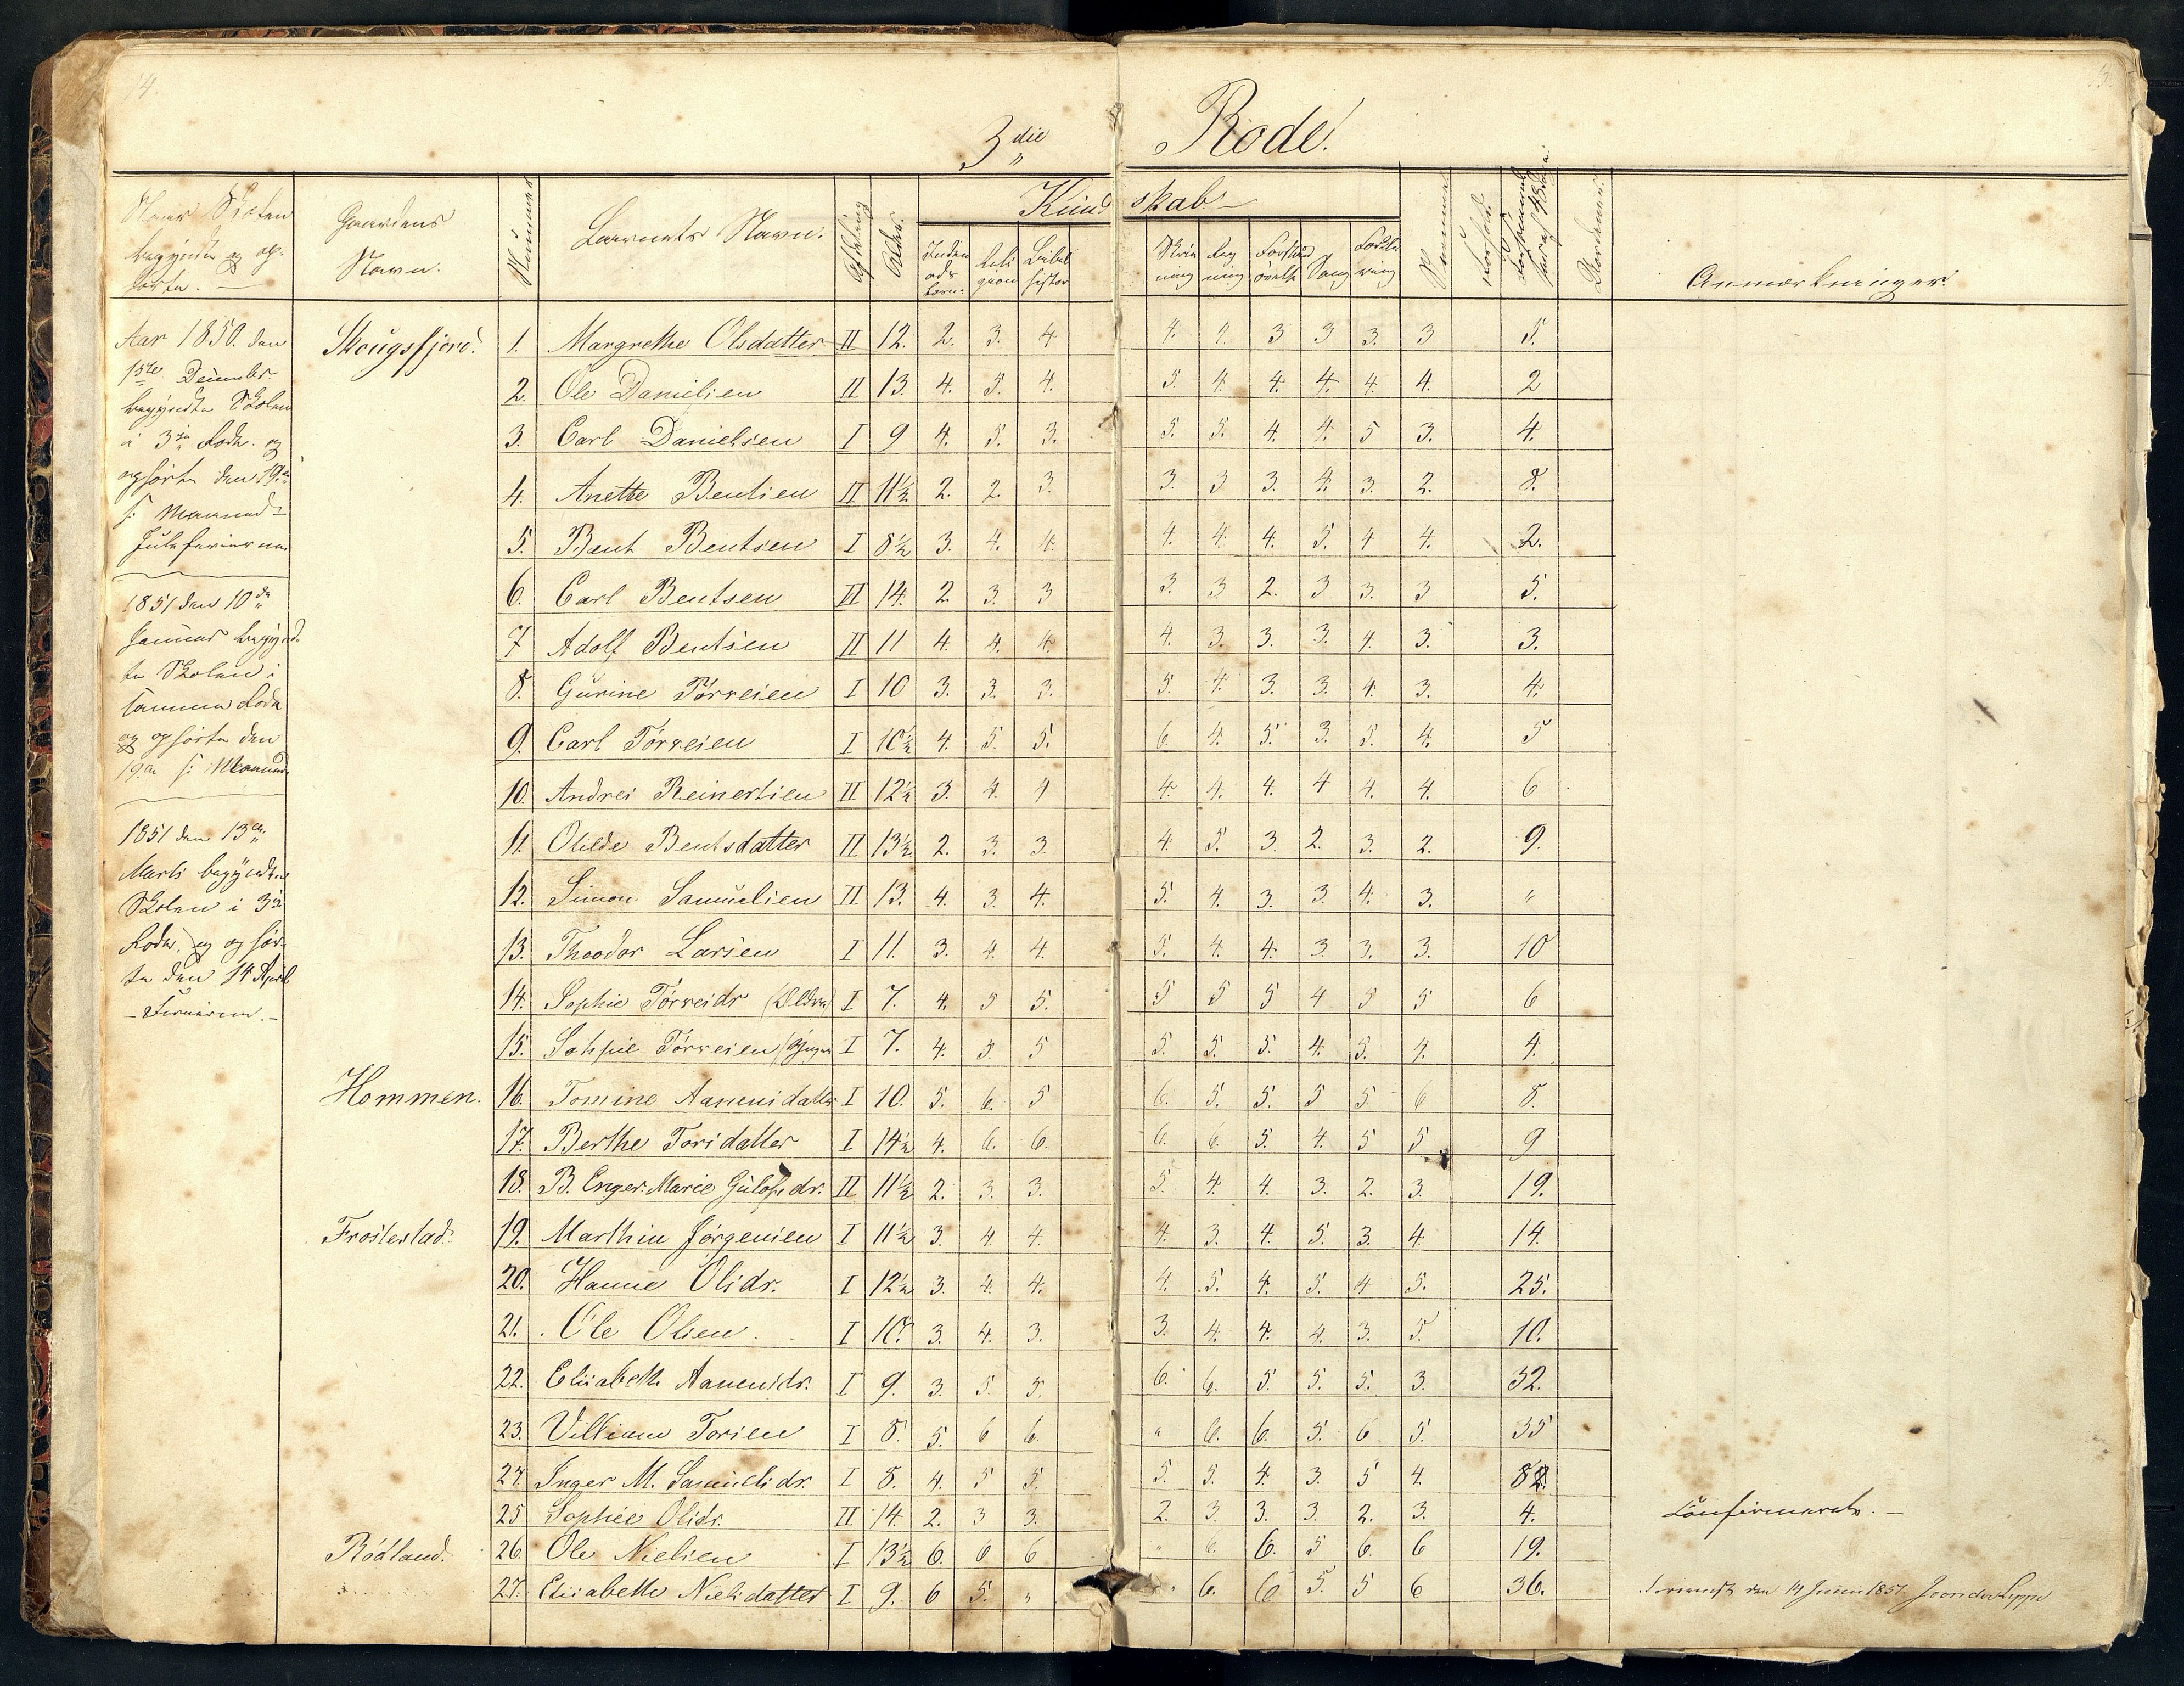 14.
3die Rode.
Naar Skolen
begyndte og op-
hørte. —
Gaardens
Navn.
Nummer
Barnets Navn.
Afdeling
Alder.
Kund skab
Reli gion
Bibel histor
Skriv ning
Reg ning
Sang
Anmærkninger
Aar 1850. den
Decembr.
begyndte Skolen
i 3die Rode. og
ophørte den 19de
s: Maaned
Juleferierne
1851 den 10de
Januar begynd-
te Skolen i
samme Rode
og ophørte den
19de s: Maaned
1851 den 13de
Marts begyndte
Skolen i 3die
Rode, og ophør-
te den 14 April
Skougsfjord. 1. Margrethe Olsdatter II 12. 2. 3. 4 4. 4. 3 3 3. 3 5.
2. Ole Danielsen II 13. 4. 5. 4. 5. 4. 4. 4. 4 4. 2
3. Carl Danielsen I 9 4. 5. 3. 5. 5. 4. 4. 5 3. 4.
4. Anette Bentsen II 11½ 2. 2. 3. 3. 3 3. 4. 3. 2. 8.
5. Bent Bentsen I 8½ 3. 4. 4. 4. 4. 4. 5. 4 4. 2.
6. Carl Bentsen II 14. 2. 3. 3 3. 3 2. 3 3. 3 5.
7 Adolf Bentsen II 11 4. 4. 4. 4. 3. 3. 3. 4. 3. 3.
8. Gurine Tørresen I 10 3. 3. 3. 5. 4. 3. 3. 4. 3. 4.
9. Carl Tørresen I 10½ 4. 5. 5. 6. 4. 5. 3. 5. 4. 5
10. Andres Reinertsen II 12½ 3. 4. 4 4. 4. 4. 4 4. 4. 6
11. Olilde Bentsdatter II 13½ 2. 3. 3. 4. 5. 3. 2. 3. 2. 9.
12. Simon Samuelsen II 13. 4. 3. 4. 5. 4. 3. 3. 4. 3. "
13. Theodor Larsen I 11. 3. 4. 4. 5. 4. 4. 3. 3. 3. 10
14. Sophie Tørresdr (Ældre) I 7. 4. 5 5. 5 5 5 4 5 5 6
15. Sohpie Tørresen (Yngre I 7. 4. 5. 5 5. 5. 5. 4. 5. 4. 4.
Hommen. 16. Tomine Aanensdatter I 10. 5. 6. 5 6. 5. 5. 5 5 6 8.
17. Berthe Torsdatter I 14½ 4. 6. 6. 6. 6. 5. 4. 5 5 9
18. B. Enger. Marie Gulofs dr. II 11½ 2. 3. 3. 5. 4. 4. 3. 2. 3. 19.
Frostestad. 19. Marthin Jørgensen I 11½ 3. 4. 4. 4. 3. 4. 5. 3. 4. 14.
20. Hanne Olsdr. I 12½ 3. 4. 4. 4. 5. 4. 5. 4 5. 25.
21. Ole Olsen. I 10. 3. 4. 3. 3. 4. 4. 4. 3. 5. 10.
22. Elisabeth Aanensdr. I 9. 3. 5. 5. 6. 6. 5. 5. 5. 3. 32.
23. Villiam Torsen I 8. 5. 6 6. " 6. 6. 5. 6 5. 35
24. Inger M. Samuelsdr. I 8. 4. 5 5. 5. 5. 4. 3. 5 4
25 Sophie Olsdr. II 14. 2. 3 3. 2. 3. 3. 3. 2. 3. 4. Confirmerede. —
Rødland. 26. Ole Nielsen I 13½ 6. 6 6 " 6. 6. 5 6. 6 19.
27. Elisabethe Nielsdatter I 9. 6 5. " " 6. 6 5. 5 6 36. den 14 Juni 1851.